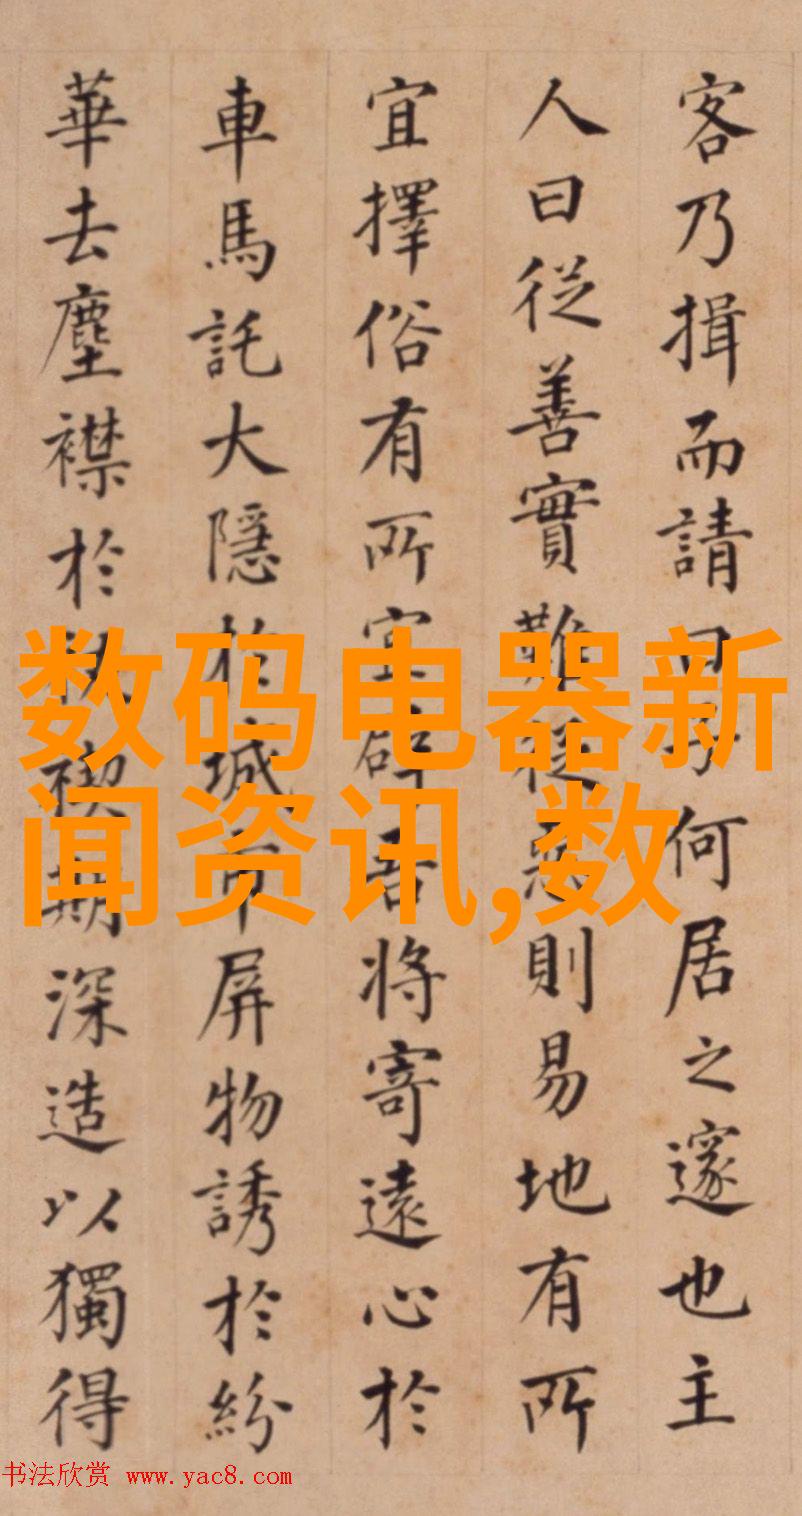 客乃揖而請曰子何居之邃也主
人曰從善實難從惡則易地有所
宜擇俗有所宜辟吾將寄遠心於
車馬託大隱於城市屏物誘於紛
華去塵襟於
禊期深造以獨得
数码电器新
闻资讯,数
书法欣赏 www.yac8.com